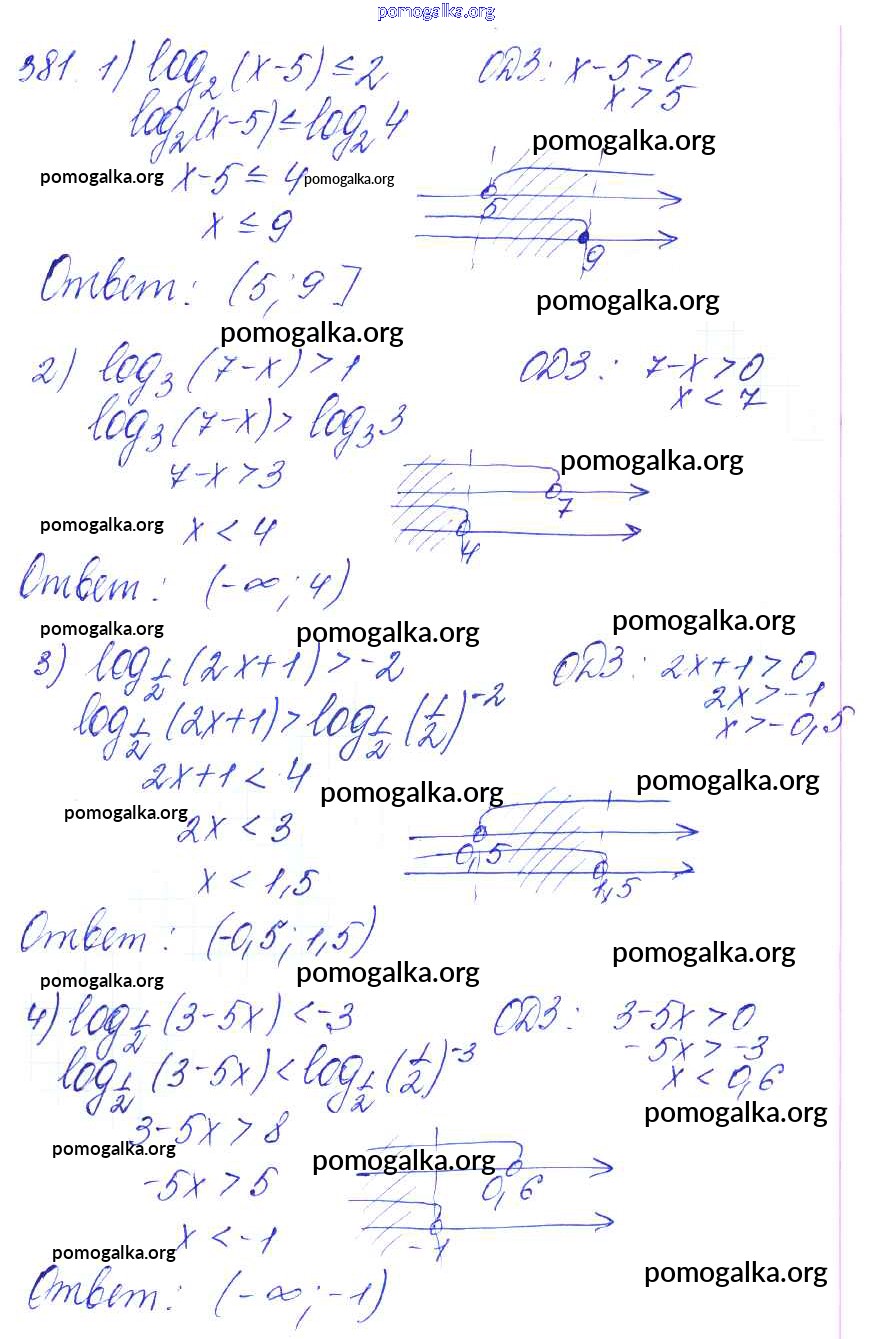 pomogalka.org
381. 1) log₂(x-5) ≤ 2 ОДЗ: x-5>0
x>5
log₂(x-5) ≤ log₂4
pomogalka.org
pomogalka.org x-5 ≤ 4 pomogalka.org
5
x ≤ 9
9
Ответ: (5; 9]
pomogalka.org
pomogalka.org
2) log₃(7-x)>1 ОДЗ: 7-x>0
x<7
log₃(7-x)> log₃3
7-x>3 pomogalka.org
7
pomogalka.org x<4
4
Ответ: (-∞; 4)
pomogalka.org pomogalka.org pomogalka.org
3) log½(2x+1)>-2 ОДЗ: 2x+1>0
2x>-1
log½(2x+1)>log½(½)⁻² x>-0,5
2x+1<4 pomogalka.org pomogalka.org
pomogalka.org 2x<3
0,5
x<1,5 1,5
Ответ: (-0,5; 1,5)
pomogalka.org pomogalka.org pomogalka.org
4) log½(3-5x)<-3 ОДЗ: 3-5x>0
-5x>-3
log½(3-5x)<log½(½)⁻³ x<0,6
pomogalka.org
3-5x>8
pomogalka.org pomogalka.org
-5x>5 0,6
x<-1 -1
pomogalka.org
pomogalka.org
Ответ: (-∞; -1)